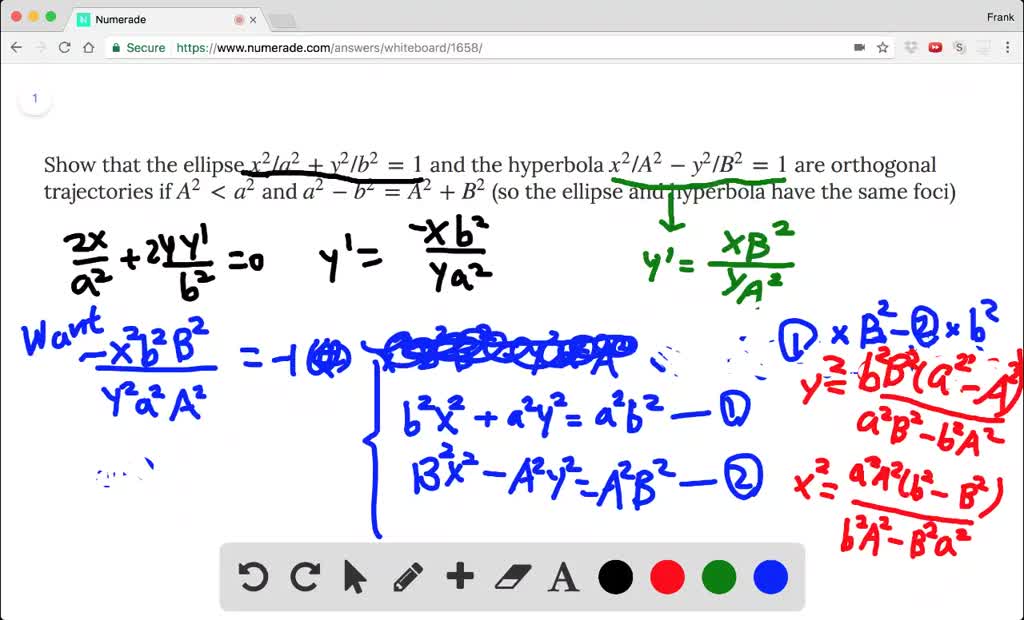 Numerade
Frank
Secure https://www.numerade.com/answers/whiteboard/1658/
S
1
Show that the ellipse x²/a² + y²/b² = 1 and the hyperbola x²/A² − y²/B² = 1 are orthogonal
trajectories if A² < a² and a² − b² = A² + B² (so the ellipse and hyperbola have the same foci)
2x/a² + 2yy'/b² = 0
y' = -xb²/ya²
y' = xB²/yA²
Want -x²b²B²/y²a²A² = -1
① × B² - ② × b²
y² = b²B²(a² - A²)/a²B² - b²A²
b²x² + a²y² = a²b² — ①
B²x² - A²y² = A²B² — ②
x² = a²A²(b² - B²)/b²A² - B²a²
A